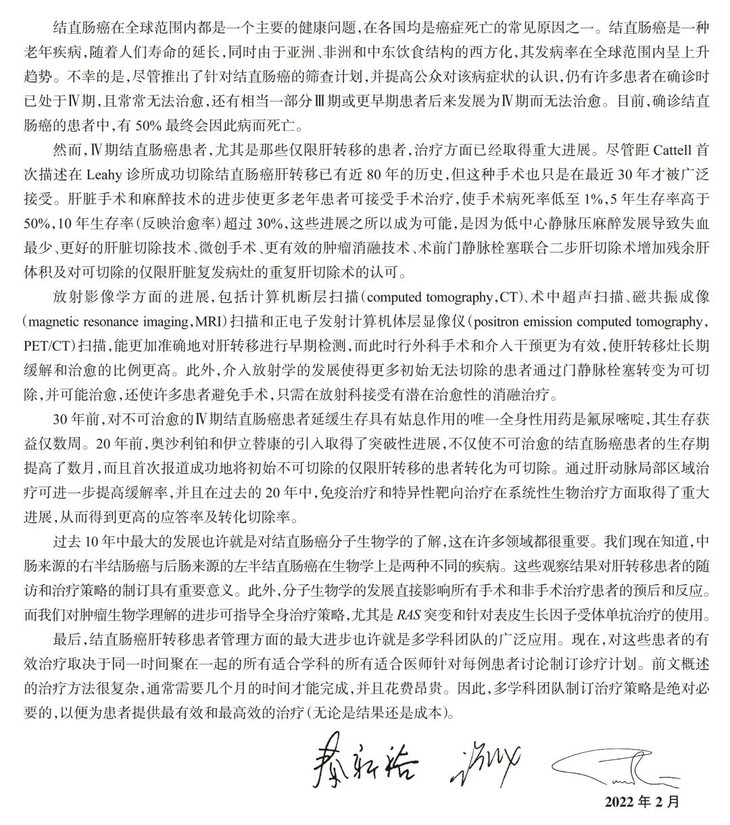 结直肠癌在全球范围内都是一个主要的健康问题,在各国均是癌症死亡的常见原因之一。结直肠癌是一种
老年疾病,随着人们寿命的延长,同时由于亚洲、非洲和中东饮食结构的西方化,其发病率在全球范围内呈上升
趋势。不幸的是,尽管推出了针对结直肠癌的筛查计划,并提高公众对该病症状的认识,仍有许多患者在确诊时
已处于Ⅳ期,且常常无法治愈,还有相当一部分Ⅲ期或更早期患者后来发展为Ⅳ期而无法治愈。目前,确诊结直
肠癌的患者中,有 50% 最终会因此病而死亡。
然而,Ⅳ期结直肠癌患者,尤其是那些仅限肝转移的患者,治疗方面已经取得重大进展。尽管距 Cattell 首
次描述在 Leahy 诊所成功切除结直肠癌肝转移已有近 80 年的历史,但这种手术也只是在最近 30 年才被广泛
接受。肝脏手术和麻醉技术的进步使更多老年患者可接受手术治疗,使手术病死率低至 1%,5 年生存率高于
50%,10 年生存率(反映治愈率)超过 30%,这些进展之所以成为可能,是因为低中心静脉压麻醉发展导致失血
最少、更好的肝脏切除技术、微创手术、更有效的肿瘤消融技术、术前门静脉栓塞联合二步肝切除术增加残余肝
体积及对可切除的仅限肝脏复发病灶的重复肝切除术的认可。
放射影像学方面的进展,包括计算机断层扫描(computed tomography,CT)、术中超声扫描、磁共振成像
(magnetic resonance imaging,MRI)扫描和正电子发射计算机体层显像仪(positron emission computed tomography,
PET/CT)扫描,能更加准确地对肝转移进行早期检测,而此时行外科手术和介入干预更为有效,使肝转移灶长期
缓解和治愈的比例更高。此外,介入放射学的发展使得更多初始无法切除的患者通过门静脉栓塞转变为可切
除,并可能治愈,还使许多患者避免手术,只需在放射科接受有潜在治愈性的消融治疗。
30 年前,对不可治愈的Ⅳ期结直肠癌患者延缓生存具有姑息作用的唯一全身性用药是氟尿嘧啶,其生存获
益仅数周。20 年前,奥沙利铂和伊立替康的引入取得了突破性进展,不仅使不可治愈的结直肠癌患者的生存期
提高了数月,而且首次报道成功地将初始不可切除的仅限肝转移的患者转化为可切除。通过肝动脉局部区域治
疗可进一步提高缓解率,并且在过去的 20 年中,免疫治疗和特异性靶向治疗在系统性生物治疗方面取得了重大
进展,从而得到更高的应答率及转化切除率。
过去 10 年中最大的发展也许就是对结直肠癌分子生物学的了解,这在许多领域都很重要。我们现在知道,中
肠来源的右半结肠癌与后肠来源的左半结直肠癌在生物学上是两种不同的疾病。这些观察结果对肝转移患者的随
访和治疗策略的制订具有重要意义。此外,分子生物学的发展直接影响所有手术和非手术治疗患者的预后和反应。
而我们对肿瘤生物学理解的进步可指导全身治疗策略,尤其是 RAS 突变和针对表皮生长因子受体单抗治疗的使用。
最后,结直肠癌肝转移患者管理方面的最大进步也许就是多学科团队的广泛应用。现在,对这些患者的有
效治疗取决于同一时间聚在一起的所有适合学科的所有适合医师针对每例患者讨论制订诊疗计划。前文概述
的治疗方法很复杂,通常需要几个月的时间才能完成,并且花费昂贵。因此,多学科团队制订治疗策略是绝对必
要的,以便为患者提供最有效和最高效的治疗(无论是结果还是成本)。
秦新裕
2022 年 2 月